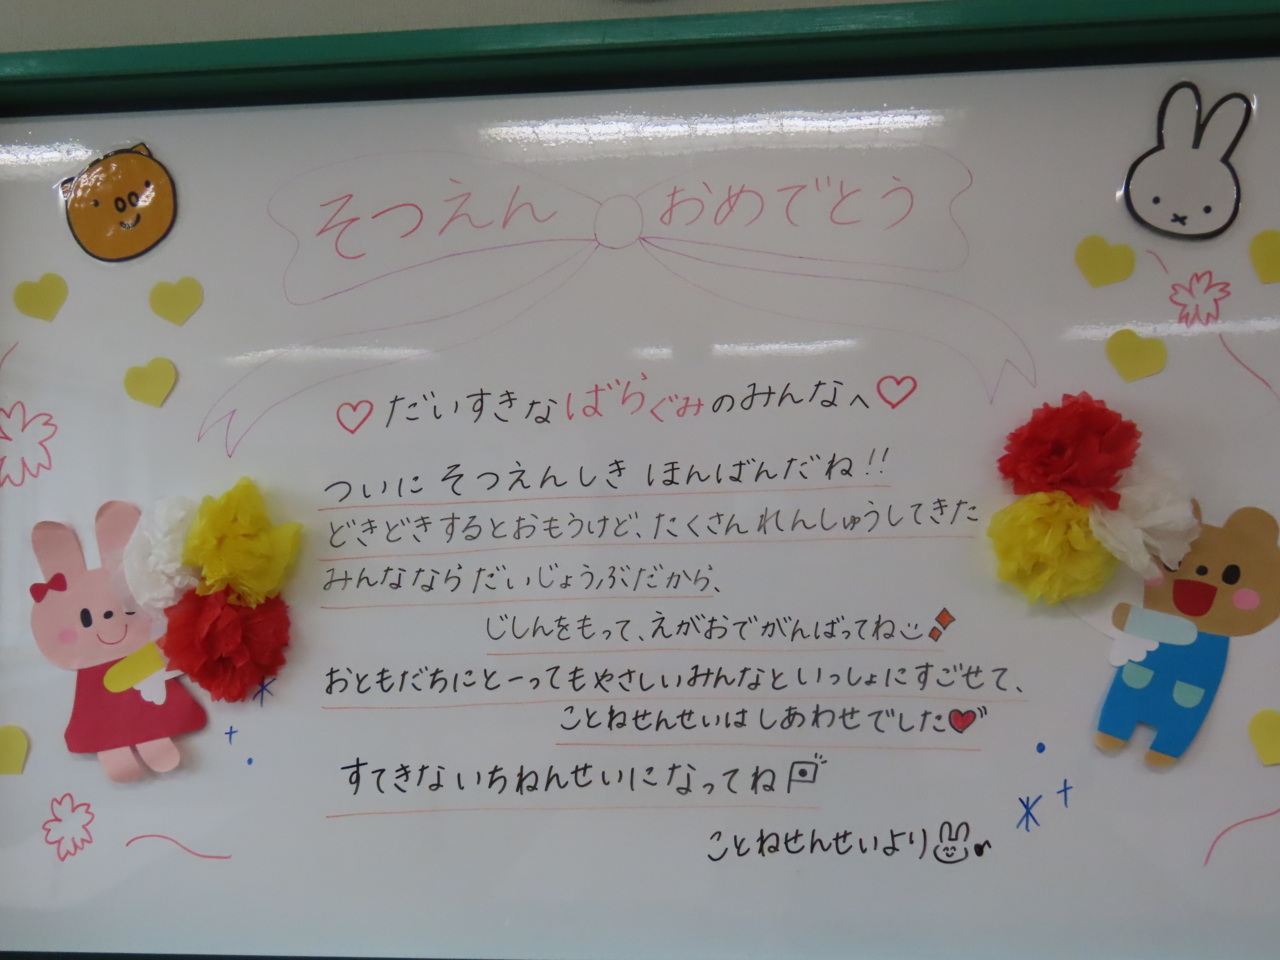 そつえん おめでとう
だいすきなばらぐみのみんなへ
ついに そつえんしき ほんばんだね!!
どきどきするとおもうけど、たくさん れんしゅうしてきた
みんなならだいじょうぶだから、
じしんをもって、えがおでがんばってね
おともだちにとーってもやさしいみんなといっしょにすごせて、
ことねせんせいは しあわせでした
すてきないちねんせいになってね
ことねせんせいより